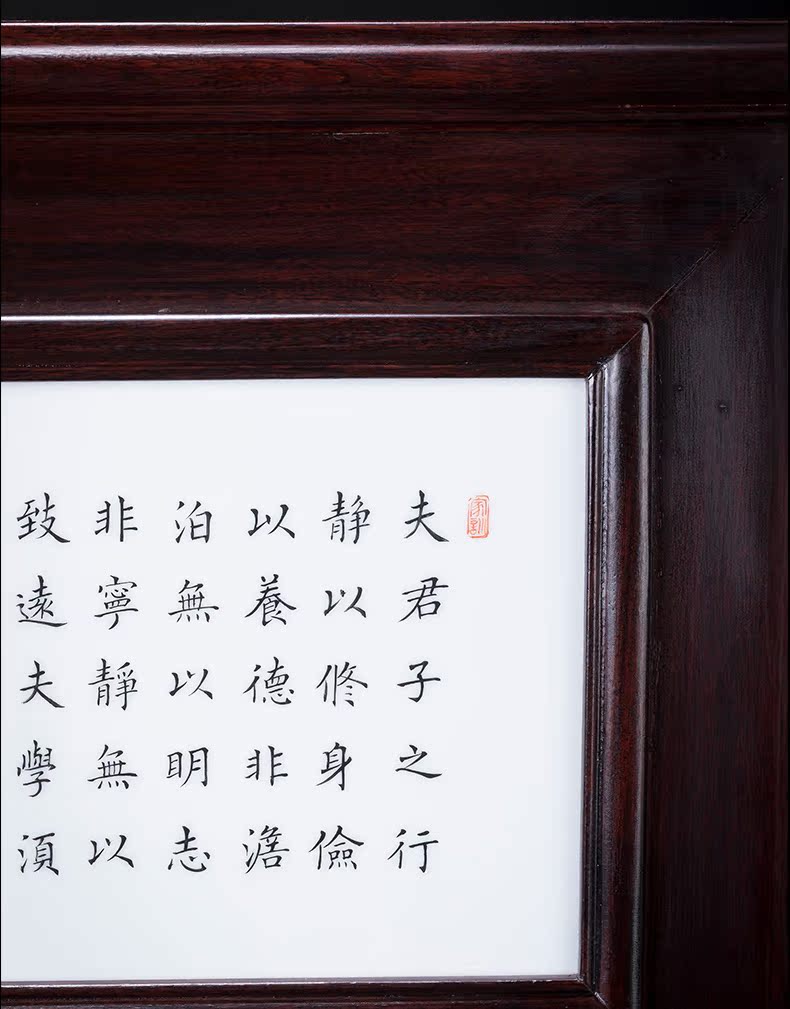 家訓
夫君子之行
静以修身儉
以養德非澹
泊無以明志
非寧靜無以
致遠夫學須